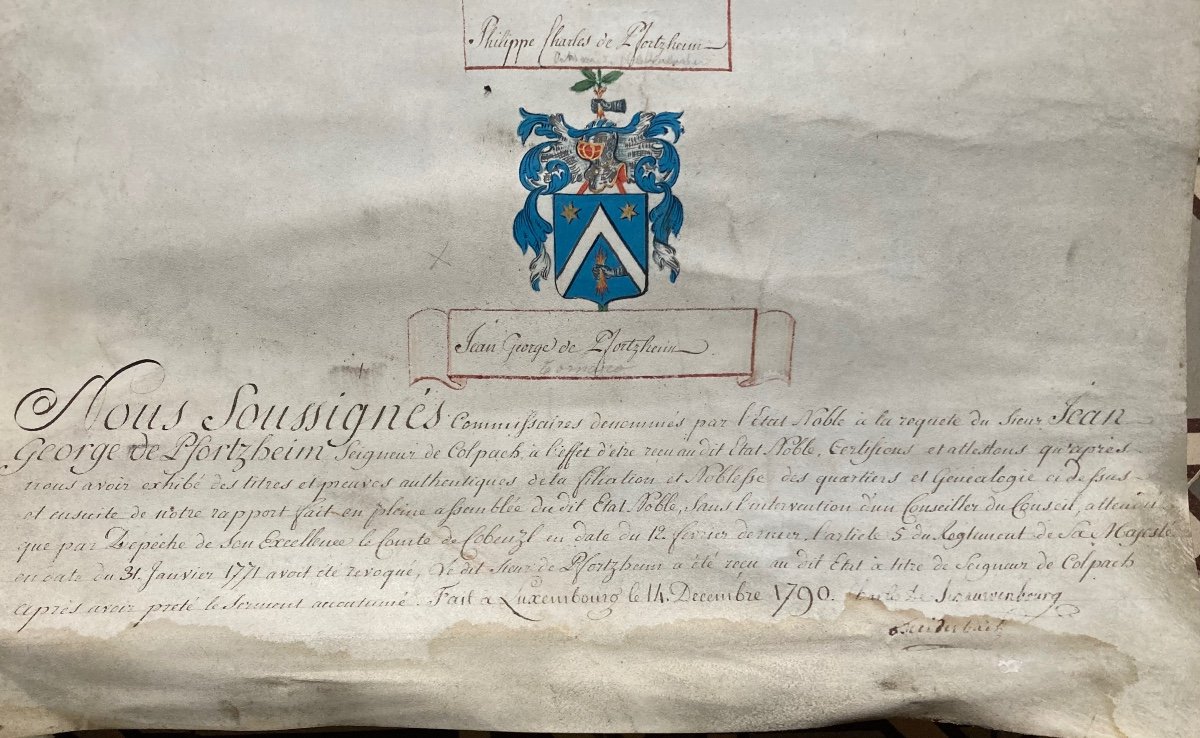 Philippe Charles de Pfortzheim
Jean George de Pfortzheim
Nous Soussignés Commissaires denommés par l'Etat Noble à la requete du Sieur Jean
George de Pfortzheim Seigneur de Colpach, à l'effet d'être reçu au dit Etat Noble, Certifions et attestons qu'après
nous avoir exhibé des titres et preuves authentiques de la filiation et Noblesse des quartiers et Genealogie ci dessus
et ensuite de notre rapport fait en pleine assemblée du dit Etat Noble, sans l'intervention d'un Conseiller du Conseil, attendu
que par Depéche de son Excellence le Comte de Cobenzl en date du 12 fevrier dernier l'article 5 du Reglement de Sa Majesté
en date du 31. Janvier 1771 avoit été revoqué, le dit Sieur de Pfortzheim a été reçu au dit Etat à titre de Seigneur de Colpach
après avoir preté le serment accoutumé. Fait à Luxembourg le 14. Decembre 1790.